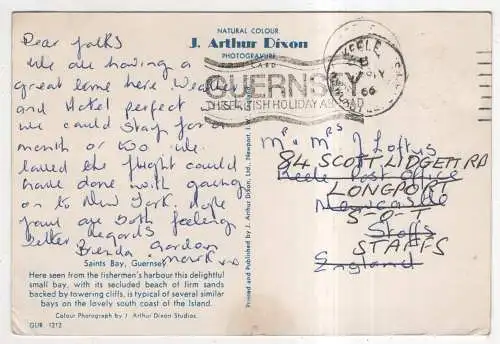 NATURAL COLOUR
J. Arthur Dixon
PHOTOGRAVURE
POST CARD
Dear folks
We are having a
great time here Weather
and Hotel perfect
we could stay for a
month or too we
loved the flight could
have done with going
on to New York. Hope
you are both feeling
better regards
Brenda Gordon
Mark
Saints Bay, Guernsey
Here seen from the fishermen's harbour this delightful
small bay, with its secluded beach of firm sands
backed by towering cliffs, is typical of several similar
bays on the lovely south coast of the Island.
Colour Photograph by J. Arthur Dixon Studios.
GUR 1212
Printed and Published by J. Arthur Dixon, Ltd., Newport, I.W.
KEELE
NEWCASTLE
66
GUERNSEY
THE BRITISH HOLIDAY ABROAD
Mr & Mrs J Loftus
84 SCOTT LIDGETT RD
Keele Post Office
LONGPORT
Newcastle
S-O-T
Staffs
STAFFS
England